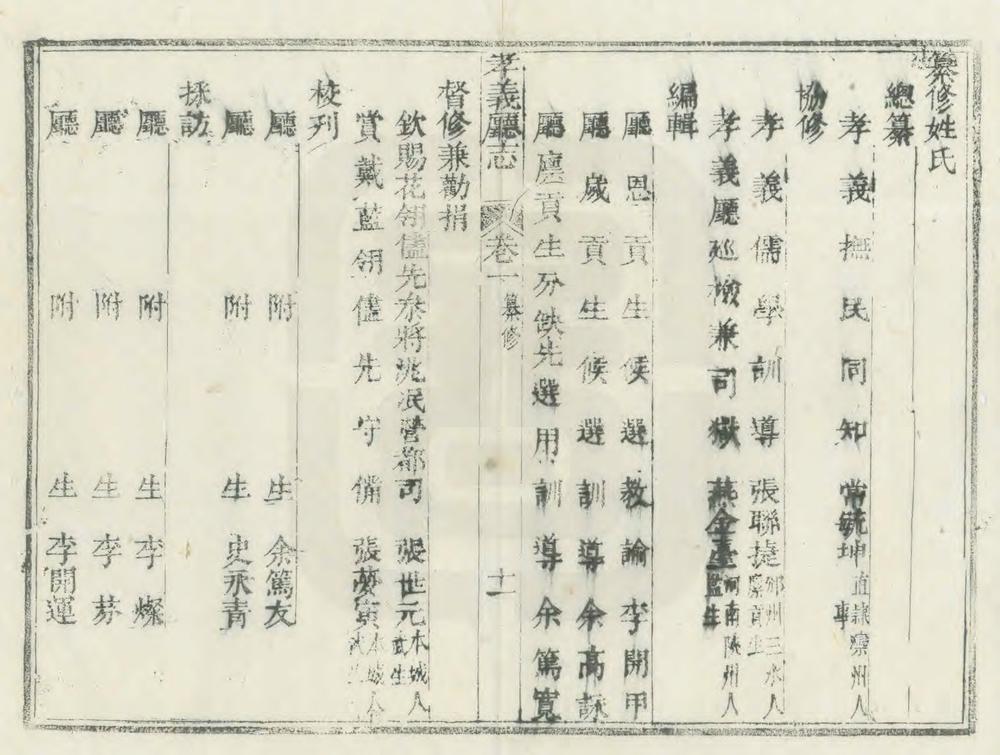 纂修姓氏
總纂
孝義撫民同知常毓坤直隸灤州人舉
協修
孝義儒學訓導張聯捷邠州三水人廩貢生
孝義廳巡檢兼司獄燕金臺河南陝州人監生
編輯
廳恩貢生候選教諭李開甲
廳歲貢生候選訓導余高詠
廳廩貢生分缺先選用訓導余篤寬
孝義廳志 卷一 纂修 十一
督修兼勸捐
欽賜花翎儘先叅將洮岷營都司張世元本城人武生
賞戴藍翎儘先守備張夢寅本城人武生
校刋
廳附生余篤友
廳附生史永青
採訪
廳附生李燦
廳附生李芬
廳附生李開運